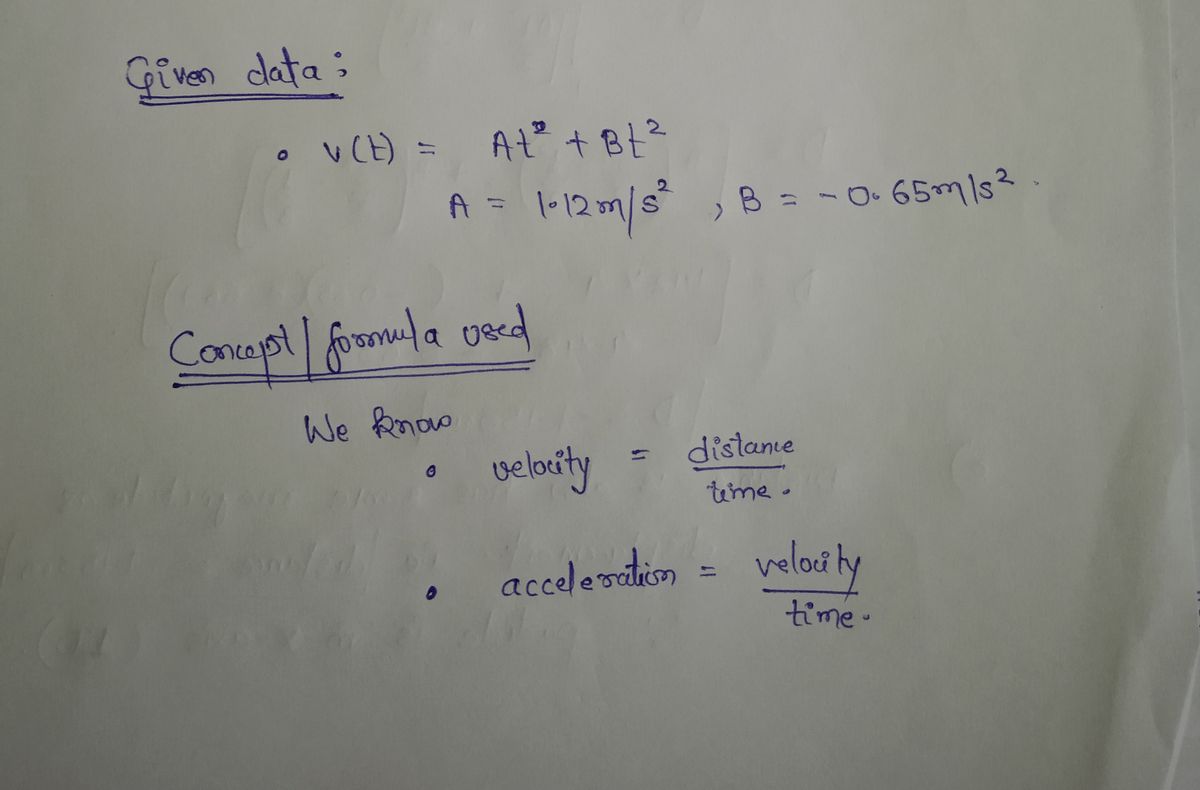 Given data :
• v(t) = At² + Bt²
A = 1.12m/s² , B = -0.65m/s² .
Concept / formula used
We know
• velocity = distance / time .
• acceleration = velocity / time .